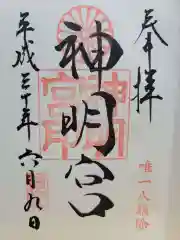 奉拝
唯一八幡
神明宮
平成三十年六月九日